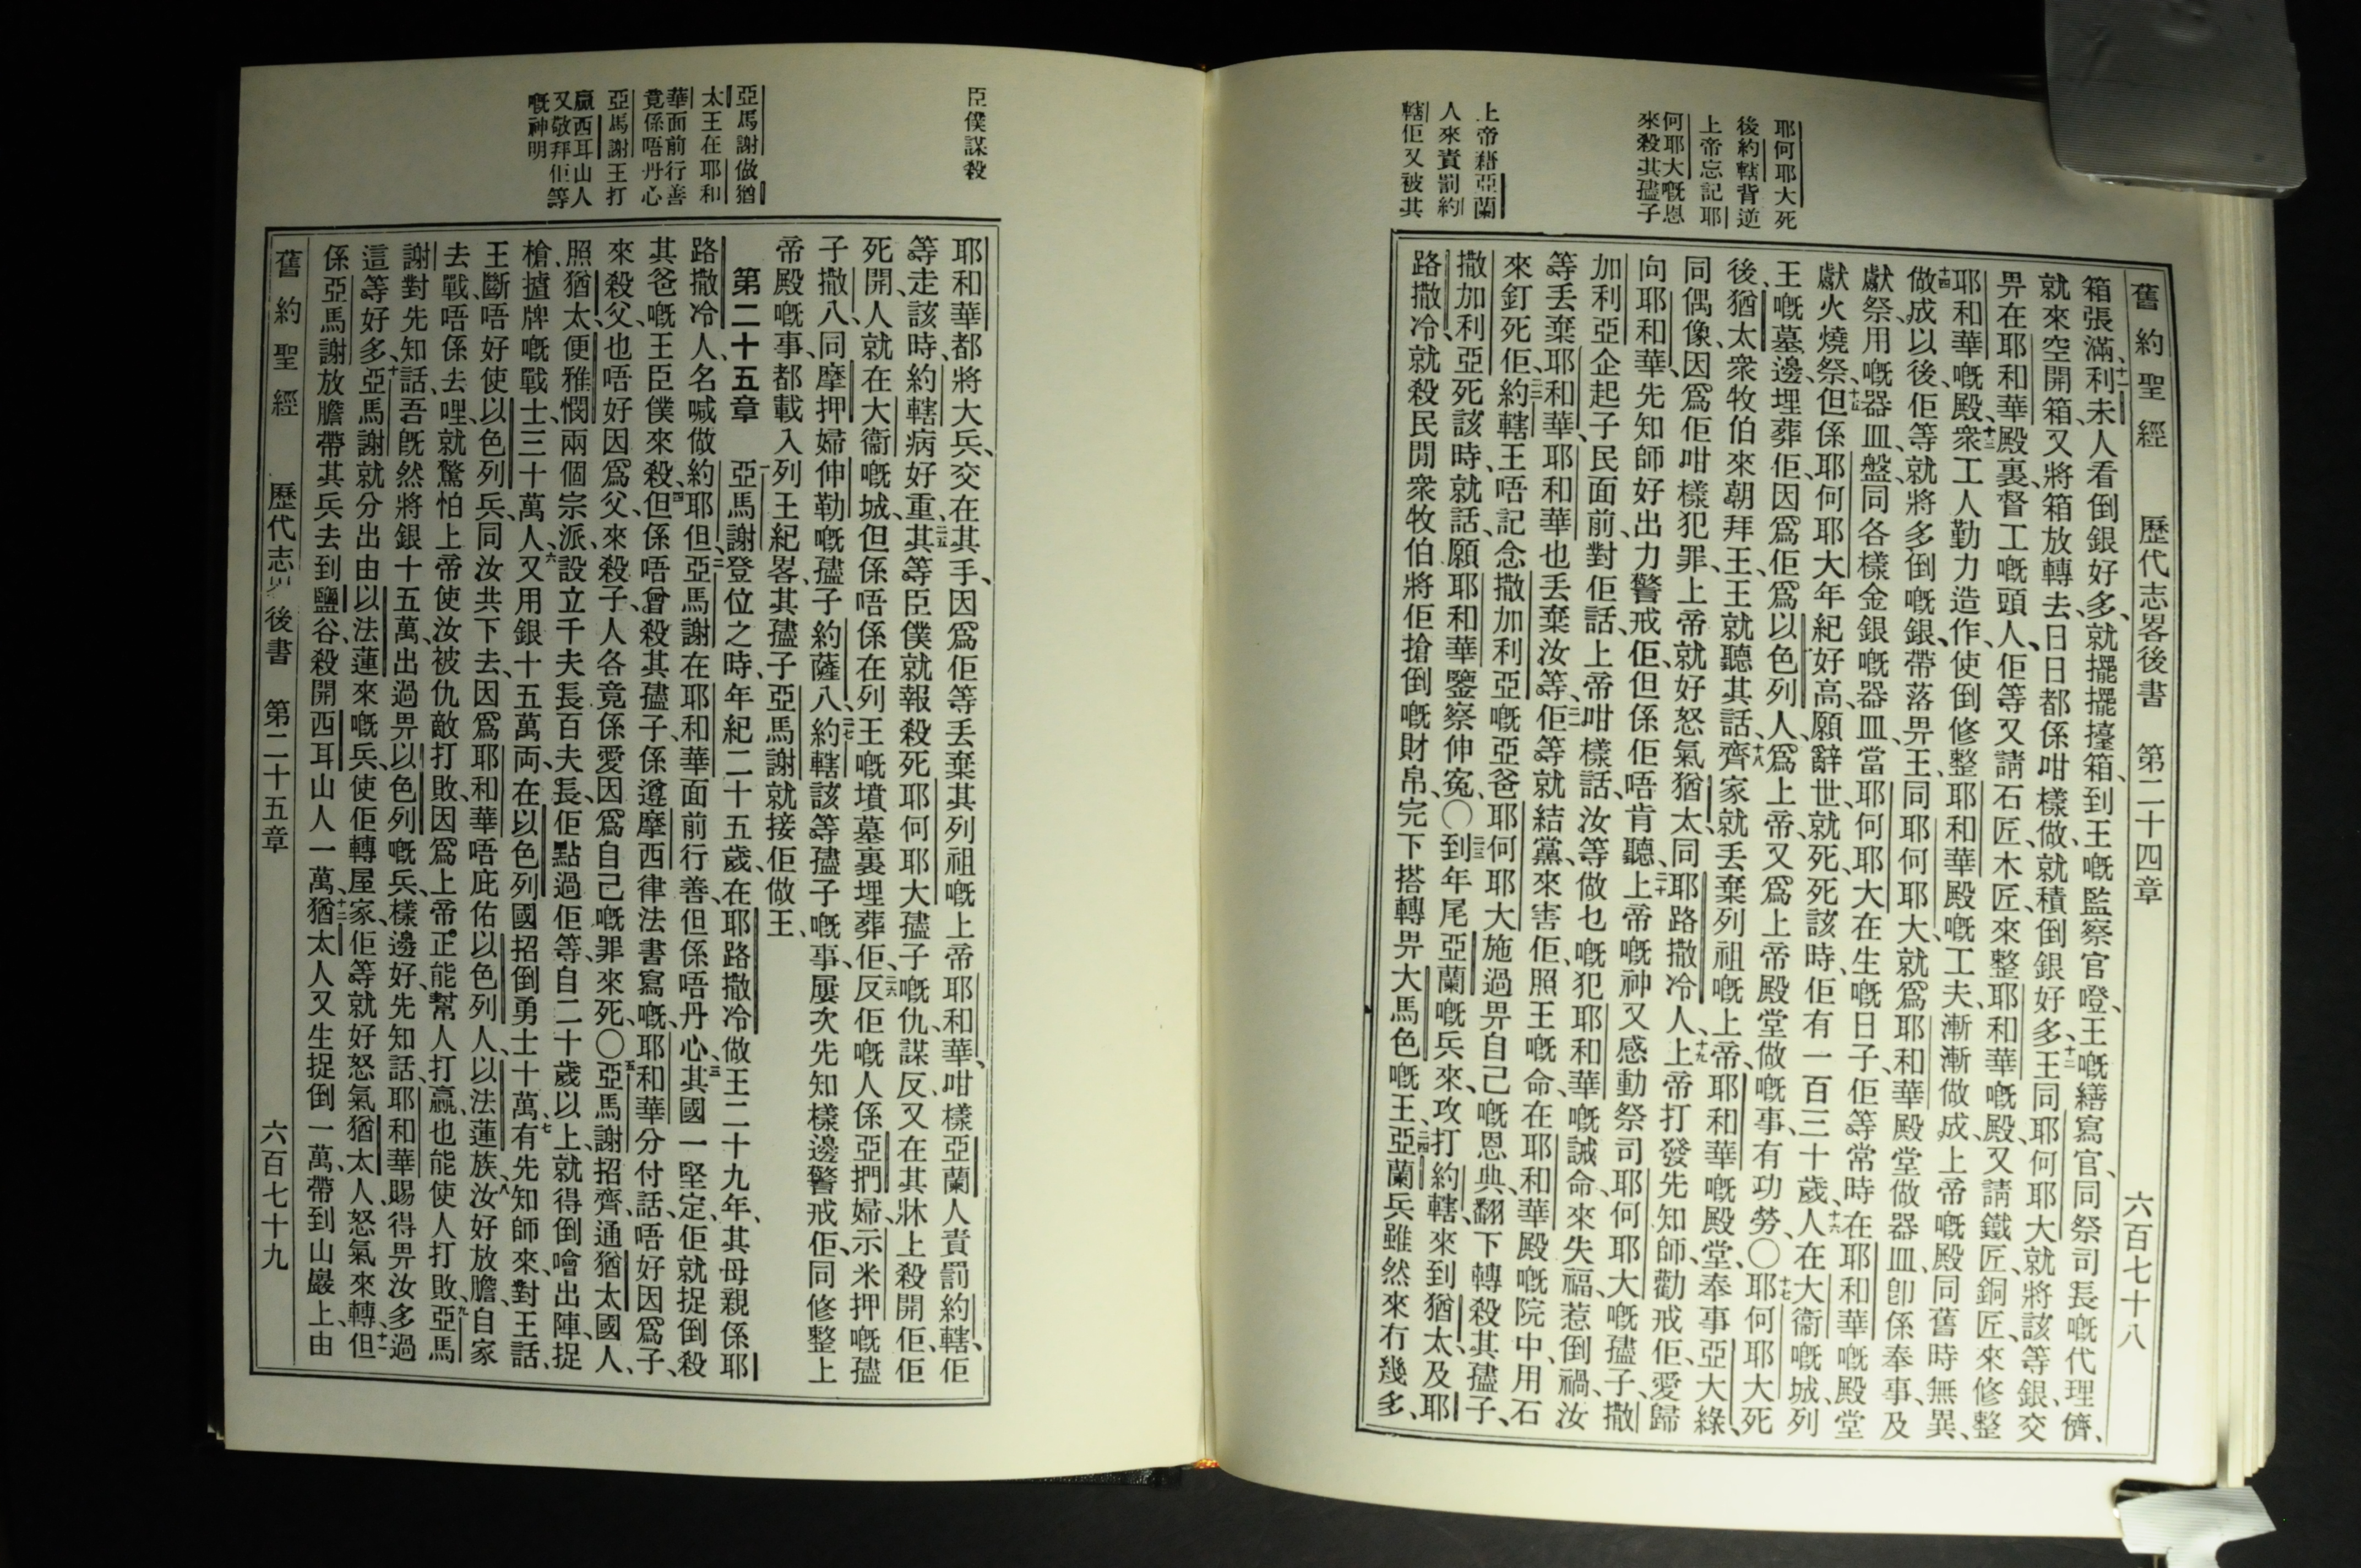 舊約聖經 歷代志畧後書 第二十四章 六百七十八
耶何耶大死
後約轄背逆
上帝忘記耶
何耶大嘅恩
來殺其孻子
上帝藉亞蘭
人來責罰約
轄佢又被其
箱張滿、十一利未人看倒銀好多、就擺擺擡箱、到王嘅監察官噔、王嘅繕寫官、同祭司長嘅代理儕、
就來空開箱、又將箱放轉去、日日都係咁樣做、就積倒銀好多、十二王同耶何耶大就將該等銀、交
畀在耶和華殿裏督工嘅頭人、佢等又請石匠、木匠、來整耶和華嘅殿、又請鐵匠、銅匠、來修整
耶和華嘅殿、十三衆工人勤力造作、使倒修整耶和華殿嘅工夫、漸漸做成、上帝嘅殿同舊時無異、
十四做成以後、佢等就將多倒嘅銀、帶落畀王、同耶何耶大、就爲耶和華殿堂做器皿、卽係奉事、及
獻祭用嘅器皿、盤、同各樣金銀嘅器皿、當耶何耶大在生嘅日子、佢等常時在耶和華嘅殿堂
獻火燒祭、十五但係耶何耶大年紀好高、願辭世、就死、死該時、佢有一百三十歲、十六人在大衞嘅城、列
王嘅墓邊、埋葬佢、因爲佢爲以色列人、爲上帝、又爲上帝殿堂做嘅事、有功勞、〇十七耶何耶大死
後、猶太衆牧伯來朝拜王、王就聽其話、十八齊家就丟棄列祖嘅上帝、耶和華嘅殿堂、奉事亞大綠、
同偶像、因爲佢咁樣犯罪、上帝就好怒氣猶太、同耶路撒冷人、十九上帝打發先知師、勸戒佢、愛歸
向耶和華、先知師好出力警戒佢、但係佢唔肯聽、二十上帝嘅神又感動祭司、耶何耶大嘅孻子、撒
加利亞、企起子民面前、對佢話、上帝咁樣話、汝等做乜嘅犯耶和華嘅誡命、來失福、惹倒禍、汝
等丟棄耶和華、耶和華也丟棄汝等、二一佢等就結黨、來害佢、照王嘅命、在耶和華殿嘅院中、用石
來釘死佢、二二約轄王唔記念撒加利亞嘅亞爸、耶何耶大施過畀自己嘅恩典、翻下轉殺其孻子、
撒加利亞死該時、就話、願耶和華鑒察伸寃、〇二三到年尾、亞蘭嘅兵來、攻打約轄、來到猶太、及耶
路撒冷、就殺民閒衆牧伯、將佢搶倒嘅財帛、完下搭轉畀大馬色嘅王、二四亞蘭兵雖然來冇幾多、
臣僕謀殺
亞馬謝做猶
太王在耶和
華面前行善
竟係唔丹心
亞馬謝王打
贏西耳山人
又敬拜佢等
嘅神明
耶和華都將大兵、交在其手、因爲佢等丟棄其列祖嘅上帝耶和華、咁樣亞蘭人責罰約轄、佢
等走該時、約轄病好重、二五其等臣僕就報殺死耶何耶大孻子嘅仇、謀反、又在其牀上殺開佢、佢
死開、人就在大衞嘅城、但係唔係在列王嘅墳墓裏埋葬佢、二六反佢嘅人係亞捫婦、示米押嘅孻
子撒八、同摩押婦伸勒嘅孻子約薩八、二七約轄該等孻子嘅事、屢次先知樣邊警戒佢、同修整上
帝殿嘅事、都載入列王紀畧、其孻子亞馬謝就接佢做王、
第二十五章 一亞馬謝登位之時、年紀二十五歲、在耶路撒冷做王二十九年、其母親係耶
路撒冷人、名喊做約耶但、二亞馬謝在耶和華面前行善、但係唔丹心、三其國一堅定、佢就捉倒殺
其爸嘅王臣僕來殺、四但係唔曾殺其孻子、係遵摩西律法書寫嘅、耶和華分付話、唔好因爲子、
來殺父、也唔好因爲父、來殺子、人各竟係愛因爲自己嘅罪來死、〇五亞馬謝招齊、通猶太國人、
照猶太、便雅憫兩個宗派、設立千夫長、百夫長、佢點過佢等、自二十歲以上、就得倒噲出陣、捉
槍、㨢牌嘅戰士三十萬人、六又用銀十五萬両、在以色列國招倒勇士十萬、七有先知師來、對王話、
王斷唔好使以色列兵、同汝共下去、因爲耶和華唔庇佑以色列人、以法蓮族、八汝好放膽自家
去戰、唔係去哩、就驚怕上帝使汝被仇敵打敗、因爲上帝正能幫人打贏、也能使人打敗、九亞馬
謝對先知話、吾旣然將銀十五萬、出過畀以色列嘅兵、樣邊好、先知話、耶和華賜得畀汝多過
這等好多、十亞馬謝就分出由以法蓮來嘅兵、使佢轉屋家、佢等就好怒氣猶太人、怒氣來轉、十一但
係亞馬謝放膽帶其兵去、到鹽谷、殺開西耳山人一萬、十二猶太人又生捉倒一萬、帶到山巖上、由
舊約聖經 歷代志畧後書 第二十五章 六百七十九